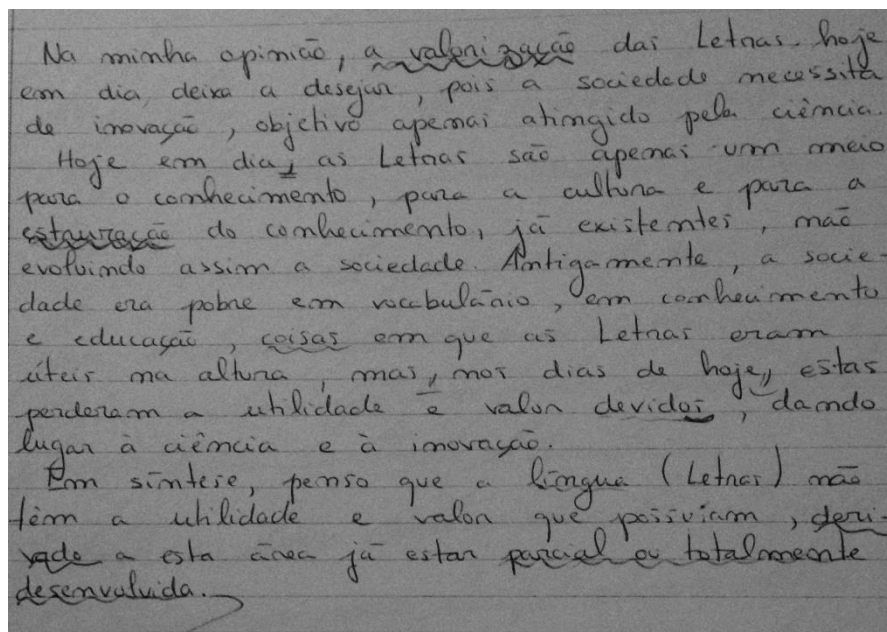 Na minha opinião, a valorização das Letras hoje
em dia, deixa a desejar, pois a sociedade necessita
de inovação, objetivo apenas atingido pela ciência.
Hoje em dia, as Letras são apenas um meio
para o conhecimento, para a cultura e para a
estruração do conhecimento, já existentes, não
evoluindo assim a sociedade. Antigamente, a socie-
dade era pobre em vocabulário, em conhecimento
e educação, coisas em que as Letras eram
úteis na altura, mas, nos dias de hoje, estas
perderam a utilidade e valor devidos, dando
lugar à ciência e à inovação.
Em síntese, penso que a língua (Letras) não
têm a utilidade e valor que possuíam, deri-
vado a esta área já estar parcial ou totalmente
desenvolvida.